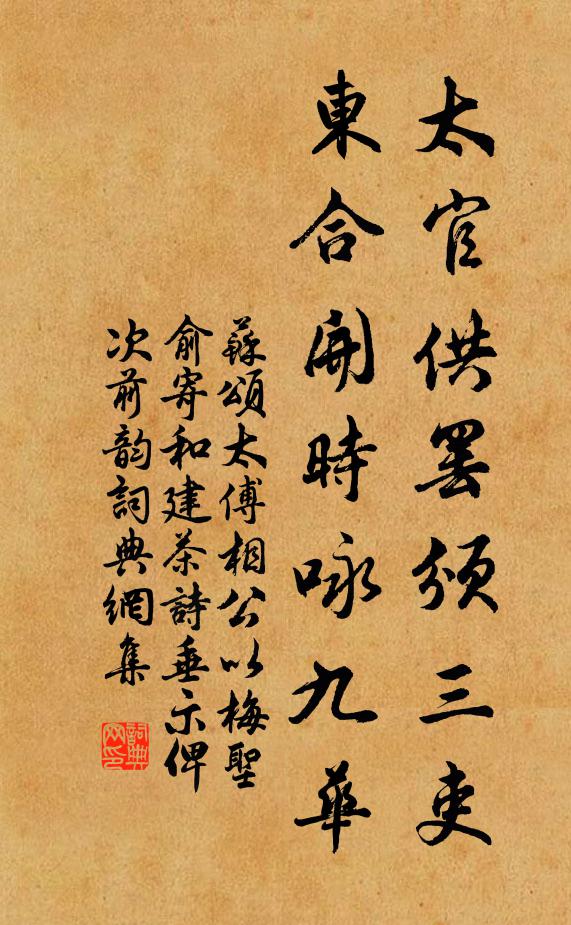 太官供罷頒三吏
東合開時咏九華
蘇頌太傅相公以梅聖
俞寄和建茶詩垂示俾
次前韵詞典網集
詞典网印